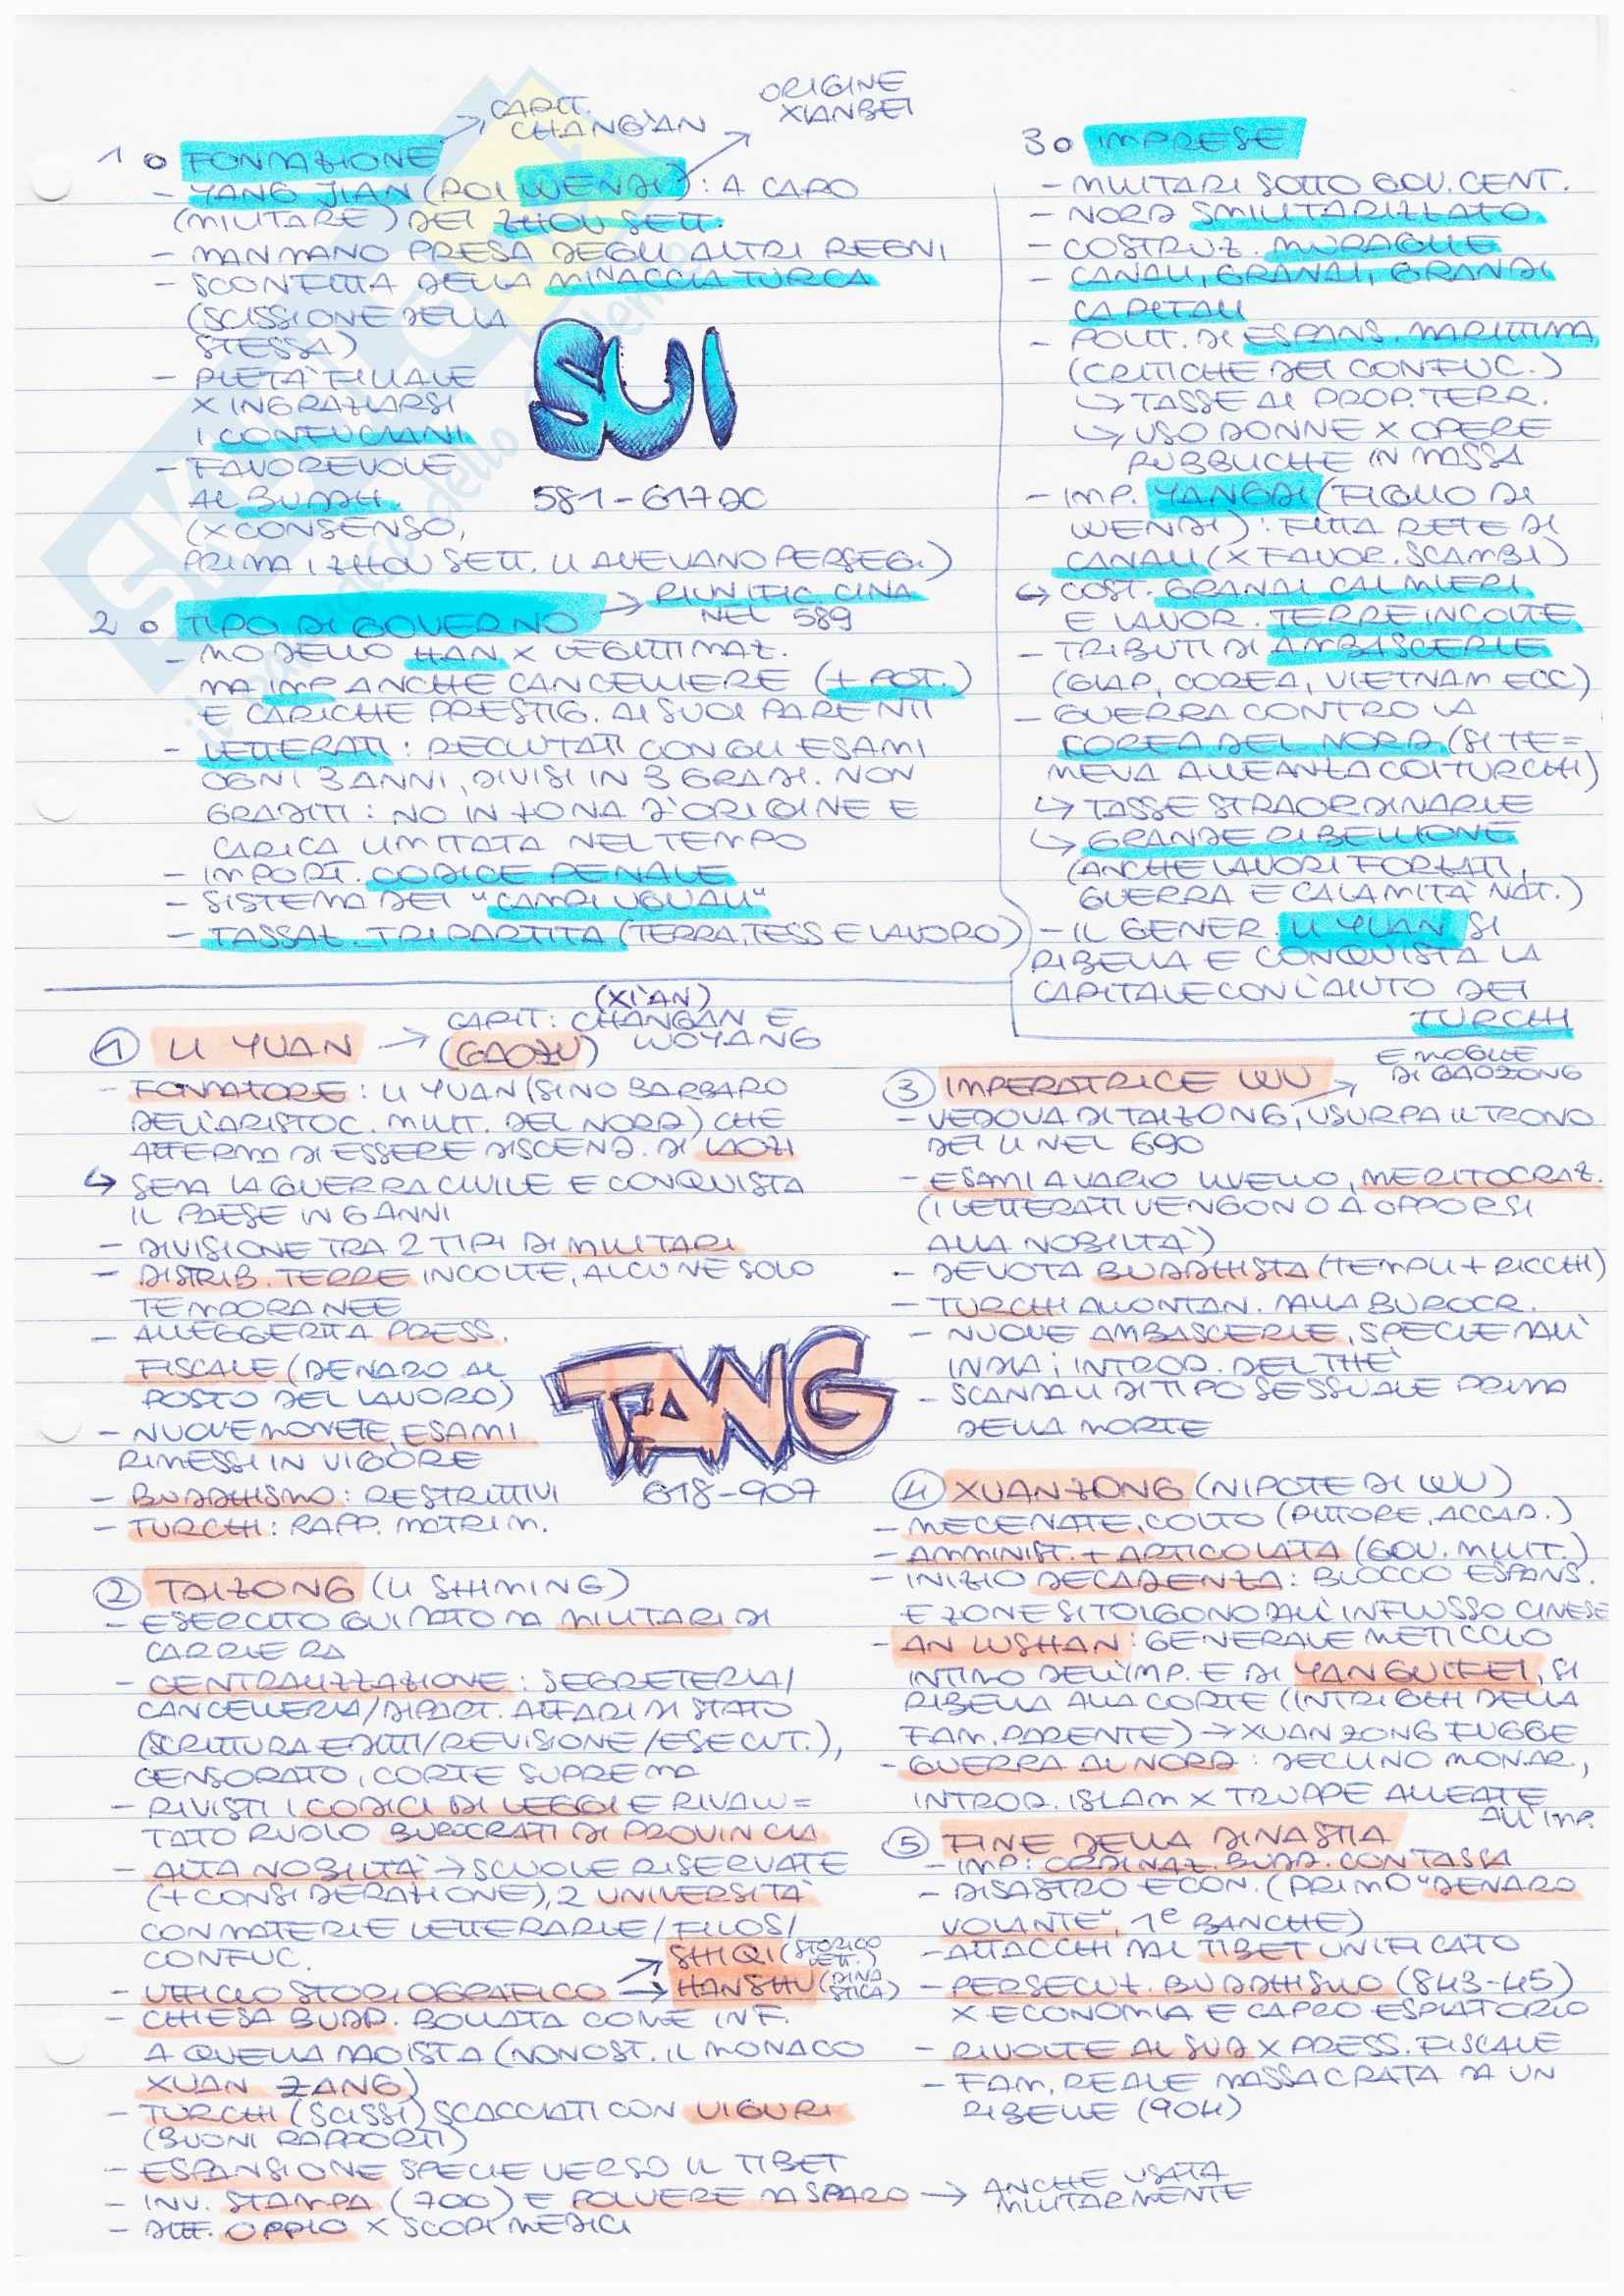 CAPIT.
CHANG'AN
ORIGINE
XIANBEI
1 o FONDAZIONE
- YANG JIAN (POI WENDI): A CAPO
(MILITARE) DEI ZHOU SETT.
- MAN MANO PRESA DEGLI ALTRI REGNI
- SCONFITTA DELLA MINACCIA TURCA
(SCISSIONE DELLA
STESSA)
- PIETA' FILIALE
X INGRAZIARSI
I CONFUCIANI
- FAVOREVOLE
AL BUDDH.
(X CONSENSO,
PRIMA I ZHOU SETT. LI AVEVANO PERSEG.)
SUI
581-617 DC
2 o TIPO DI GOVERNO → RIUNIFIC. CINA
NEL 589
- MODELLO HAN X LEGITTIMAZ.
MA IMP ANCHE CANCELLIERE (+ POT.)
E CARICHE PRESTIG. AI SUOI PARENTI
- LETTERATI: RECLUTATI CON GLI ESAMI
OGNI 3 ANNI, DIVISI IN 3 GRADI. NON
GRADITI: NO IN ZONA D'ORIGINE E
CARICA LIMITATA NEL TEMPO
- IMPORT. CODICE PENALE
- SISTEMA DEI "CAMPI UGUALI"
- TASSAZ. TRIPARTITA (TERRA, TESS E LAVORO)
3 o IMPRESE
- MILITARI SOTTO GOV. CENT.
- NORD SMILITARIZZATO
- COSTRUZ. MURAGLIE
- CANALI, GRANAI, GRANDI
CAPITALI
- POLIT. DI ESPANS. MARITTIMA
(CRITICHE DEI CONFUC.)
↳ TASSE AI PROP. TERR.
↳ USO DONNE X OPERE
PUBBLICHE IN MASSA
- IMP. YANGDI (FIGLIO DI
WENDI): FITTA RETE DI
CANALI (X FAVOR. SCAMBI)
↳ COST. GRANAI CALMIERI
E LAVOR. TERRE INCOLTE
- TRIBUTI DI AMBASCERIE
(GIAP, COREA, VIETNAM ECC)
- GUERRA CONTRO LA
COREA DEL NORD (SI TE=
MEVA ALLEANZA COI TURCHI)
↳ TASSE STRAORDINARIE
↳ GRANDE RIBELLIONE
(ANCHE LAVORI FORZATI,
GUERRA E CALAMITA' NAT.)
- IL GENER. LI YUAN SI
RIBELLA E CONQUISTA LA
CAPITALE CON L'AIUTO DEI
TURCHI
(XI'AN)
1 LI YUAN → CAPIT: CHANGAN E
(GAOZU) LUOYANG
- FONDATORE: LI YUAN (SINO BARBARO
DELL'ARISTOC. MILIT. DEL NORD) CHE
AFFERMA DI ESSERE DISCEND. DI LAOZI
↳ SEDA LA GUERRA CIVILE E CONQUISTA
IL PAESE IN 6 ANNI
- DIVISIONE TRA 2 TIPI DI MILITARI
- DISTRIB. TERRE INCOLTE, ALCUNE SOLO
TEMPORANEE
- ALLEGGERITA PRESS.
FISCALE (DENARO AL
POSTO DEL LAVORO)
- NUOVE MONETE, ESAMI
RIMESSI IN VIGORE
- BUDDHISMO: RESTRITTIVI
- TURCHI: RAPP. MATRIM.
TANG
618-907
2 TAIZONG (LI SHIMING)
- ESERCITO GUIDATO DA MILITARI DI
CARRIERA
- CENTRALIZZAZIONE: SEGRETERIA/
CANCELLERIA/DIPART. AFFARI DI STATO
(SCRITTURA EDITTI/REVISIONE/ESECUT.),
CENSORATO, CORTE SUPREMA
- RIVISTI I CODICI DI LEGGI E RIVALU=
TATO RUOLO BUROCRATI DI PROVINCIA
- ALTA NOBILTA' → SCUOLE RISERVATE
(+ CONSIDERAZIONE), 2 UNIVERSITA'
CON MATERIE LETTERARIE/FILOS/
CONFUC.
- UFFICIO STORIOGRAFICO → SHIQI (STORICO LETT.)
→ HANSHU (DINASTICA)
- CHIESA BUDD. BOLLATA COME INF.
A QUELLA DAOISTA (NONOST. IL MONACO
XUAN ZANG)
- TURCHI (SCISSI) SCACCIATI CON UIGURI
(BUONI RAPPORTI)
- ESPANSIONE SPECIE VERSO IL TIBET
- INV. STAMPA (700) E POLVERE DA SPARO → ANCHE USATA
MILITARMENTE
- DIFF. OPPIO X SCOPI MEDICI
3 IMPERATRICE WU → E MOGLIE
DI GAOZONG
- VEDOVA DI TAIZONG, USURPA IL TRONO
DEI LI NEL 690
- ESAMI A VARIO LIVELLO, MERITOCRAZ.
(I LETTERATI VENGONO A OPPORSI
ALLA NOBILTA')
- DEVOTA BUDDHISTA (TEMPLI + RICCHI)
- TURCHI ALLONTAN. DALLA BUROCR.
- NUOVE AMBASCERIE, SPECIE DALL'
INDIA; INTROD. DEL THE'
- SCANDALI DI TIPO SESSUALE PRIMA
DELLA MORTE
4 XUANZONG (NIPOTE DI WU)
- MECENATE, COLTO (PITTORE, ACCAD.)
- AMMINIST. + ARTICOLATA (GOV. MILIT.)
- INIZIO DECADENZA: BLOCCO ESPANS.
E ZONE SI TOLGONO DALL'INFLUSSO CINESE
- AN LUSHAN: GENERALE METICCIO
INTIMO DELL'IMP. E DI YANGUIFEI, SI
RIBELLA ALLA CORTE (INTRIGHI DELLA
FAM. PARENTE) → XUANZONG FUGGE
- GUERRA AL NORD: DECLINO MONAR,
INTROD. ISLAM X TRUPPE ALLEATE
ALL'IMP.
5 FINE DELLA DINASTIA
- IMP: ORDINAZ. BUDD. CON TASSA
- DISASTRO ECON. (PRIMO "DENARO
VOLANTE", 1e BANCHE)
- ATTACCHI DAL TIBET UNIFICATO
- PERSECUZ. BUDDHISMO (843-45)
X ECONOMIA E CAPRO ESPIATORIO
- RIVOLTE AL SUD X PRESS. FISCALE
- FAM. REALE MASSACRATA DA UN
RIBELLE (904)